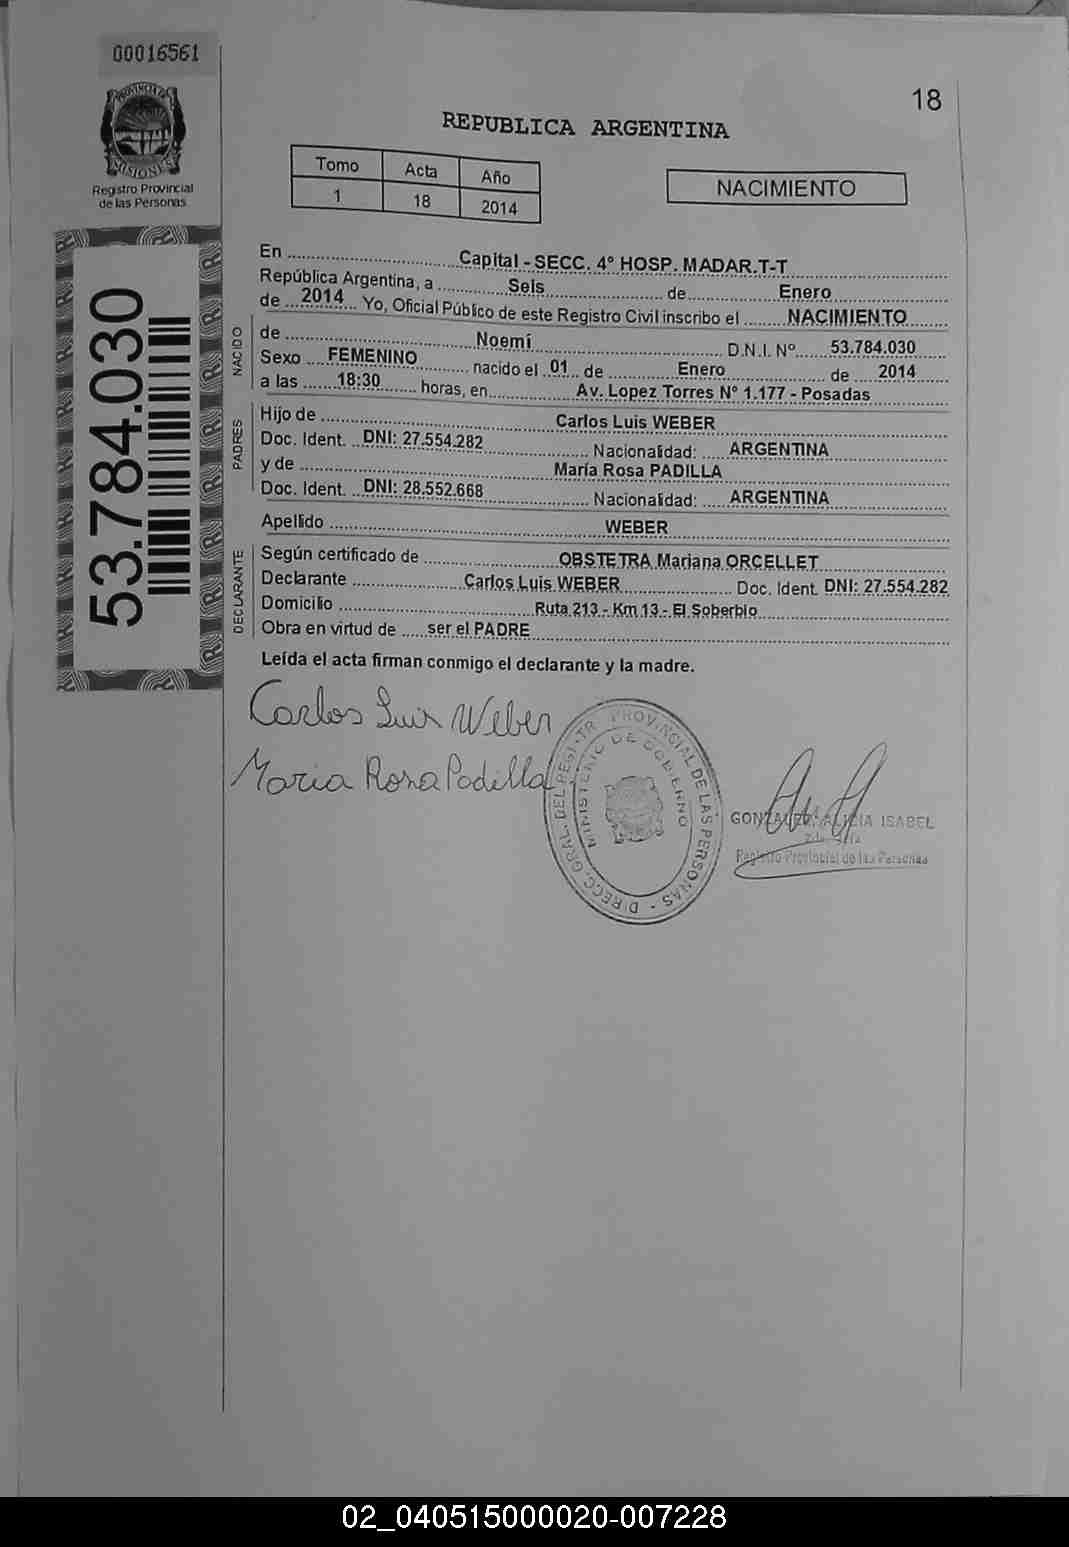 00016561
PROVINCIA DE
MISIONES
Registro Provincial
de las Personas
18
REPUBLICA ARGENTINA
Tomo Acta Año
1 18 2014
NACIMIENTO
53.784.030
En Capital - SECC. 4° HOSP. MADAR.T-T
República Argentina, a Seis de Enero
de 2014 Yo, Oficial Público de este Registro Civil inscribo el NACIMIENTO
NACIDO
de Noemí D.N.I. Nº 53.784.030
Sexo FEMENINO nacido el 01 de Enero de 2014
a las 18:30 horas, en Av. Lopez Torres Nº 1.177 - Posadas
PADRES
Hijo de Carlos Luis WEBER
Doc. Ident. DNI: 27.554.282 Nacionalidad: ARGENTINA
y de María Rosa PADILLA
Doc. Ident. DNI: 28.552.668 Nacionalidad: ARGENTINA
Apellido WEBER
DECLARANTE
Según certificado de OBSTETRA Mariana ORCELLET
Declarante Carlos Luis WEBER Doc. Ident. DNI: 27.554.282
Domicilio Ruta 213 - Km 13 - El Soberbio
Obra en virtud de ser el PADRE
Leída el acta firman conmigo el declarante y la madre.
Carlos Luis Weber
Maria Rosa Padilla
DIRECC. GRAL. DEL REGISTR. PROVINCIAL DE LAS PERSONAS
MINISTERIO DE GOBIERNO
GONZALEZ, ALICIA ISABEL
Registro Provincial de las Personas
02_040515000020-007228